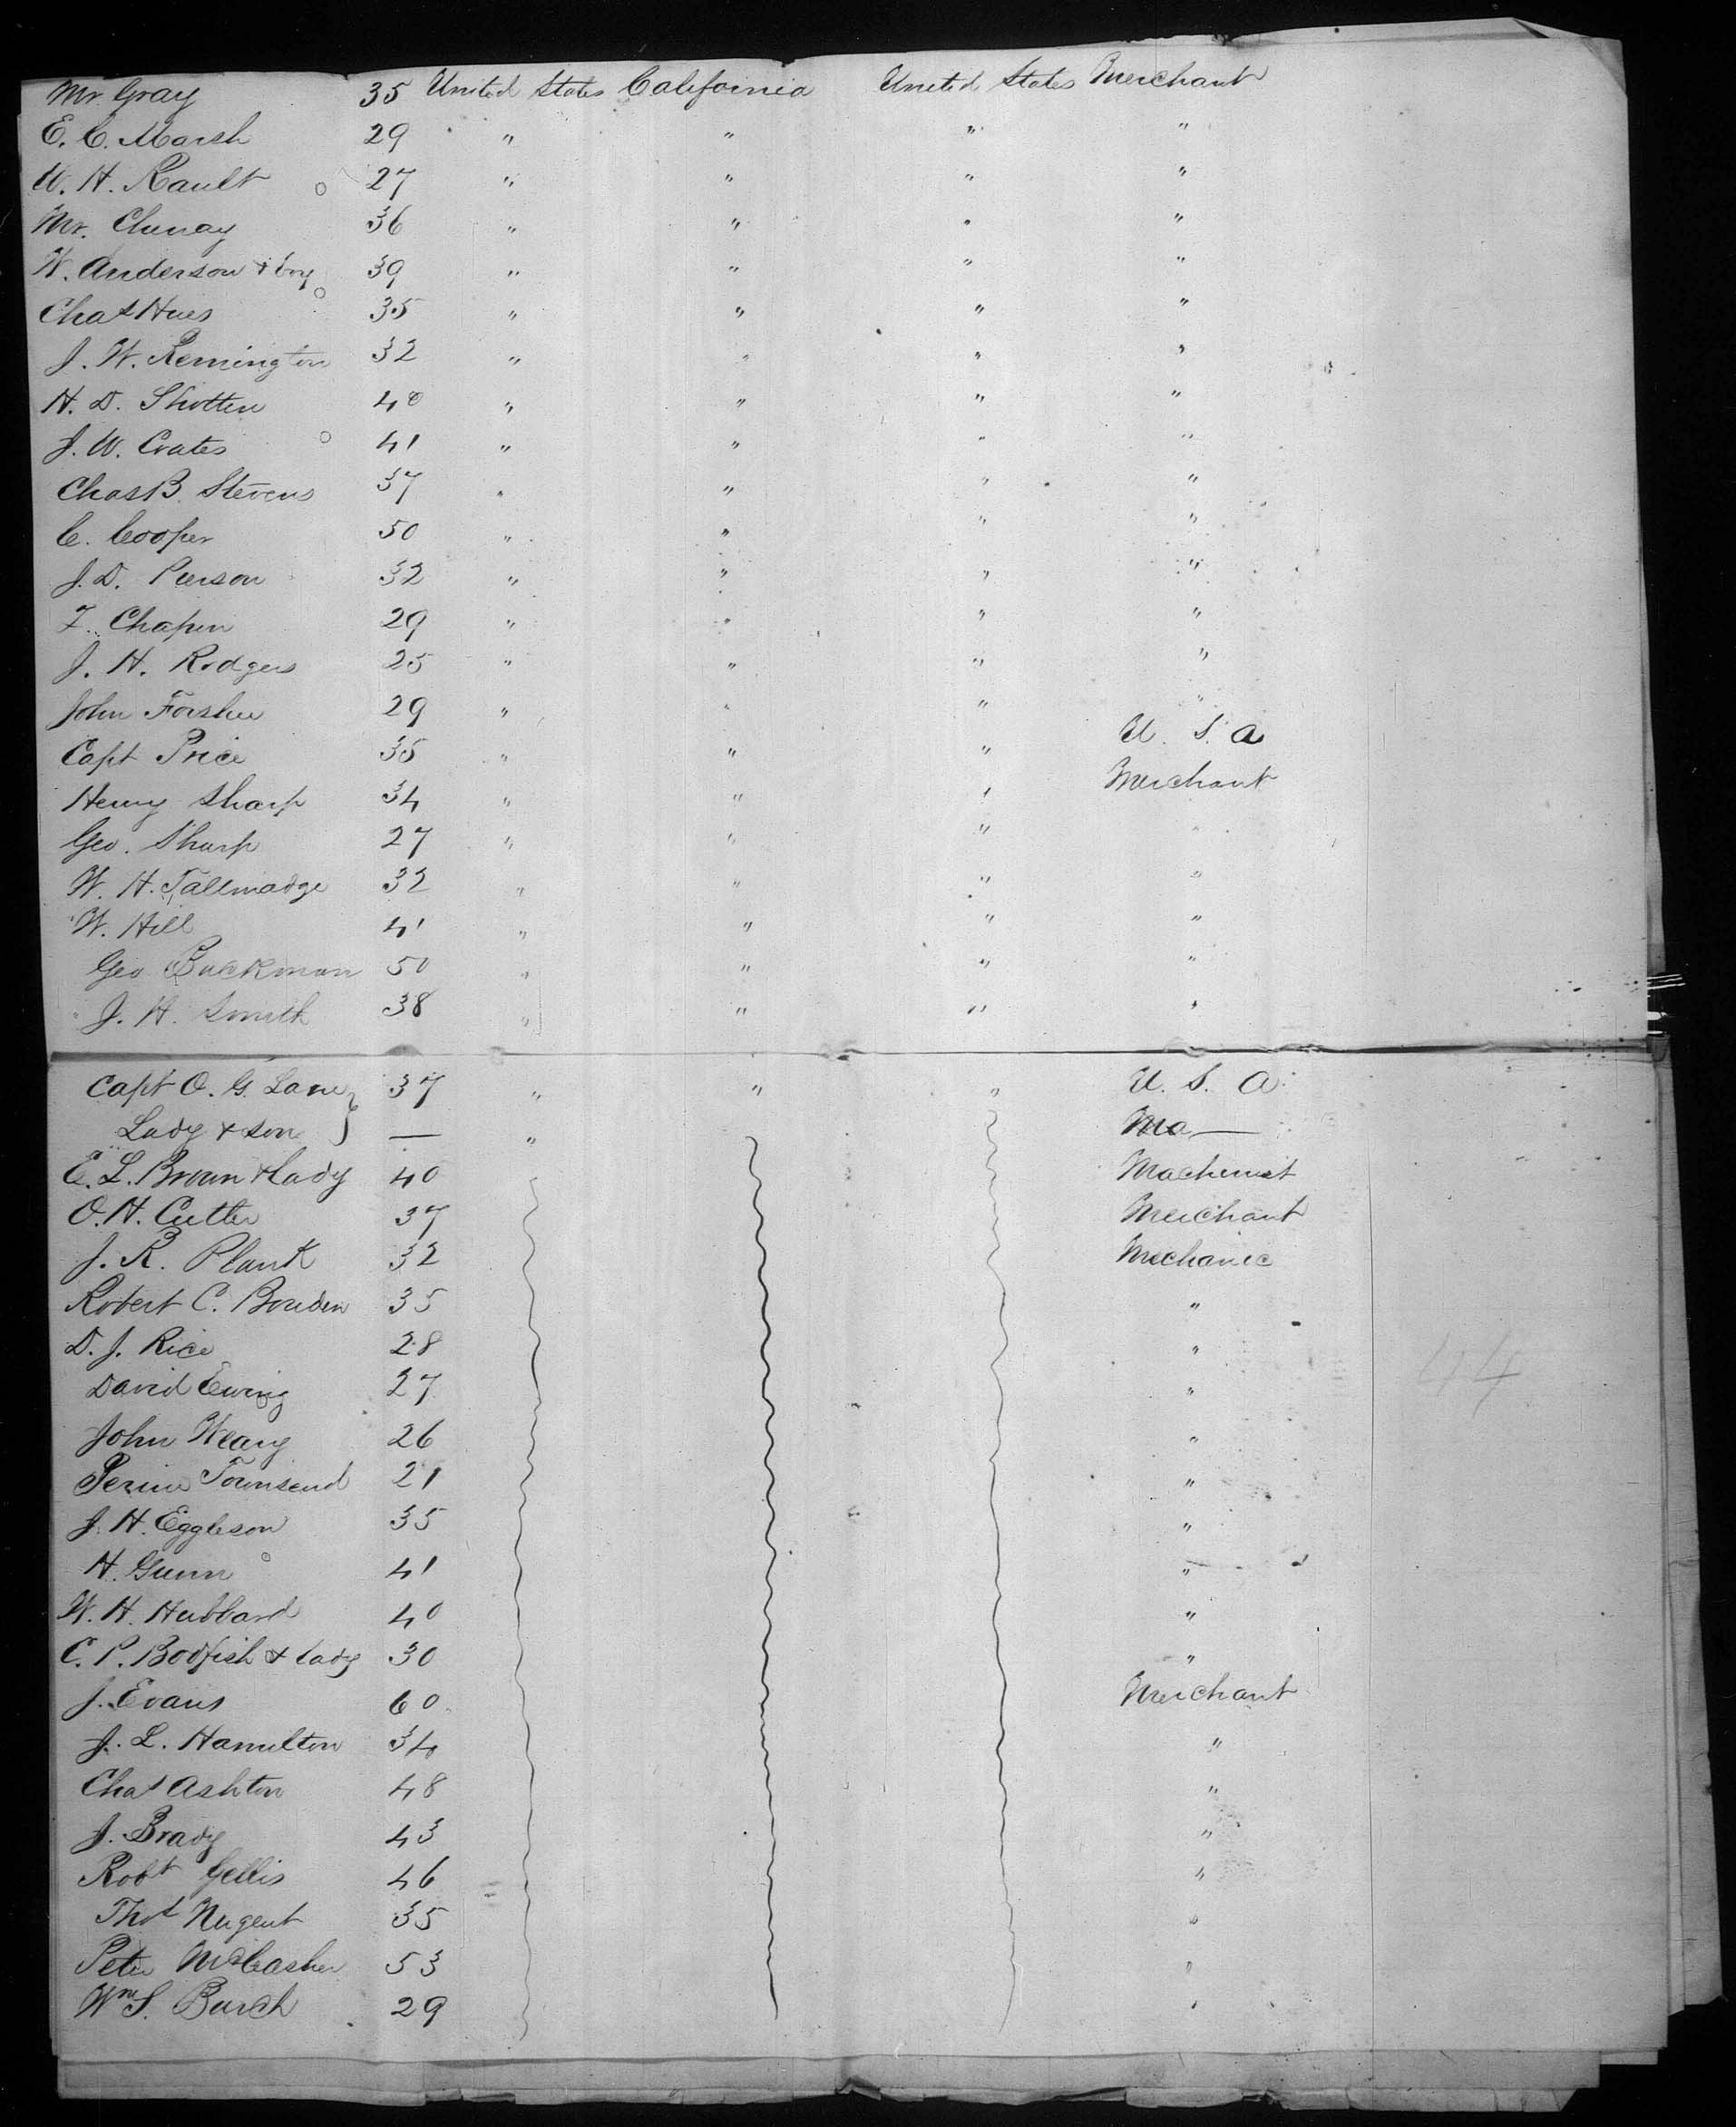 Mr. Gray 35 United States California United States Merchant
E. C. Marsh 29 " " " "
W. H. Rault 27 " " " "
Mr. Clunay 36 " " " "
W. Anderson & boy 39 " " " "
Chas Hues 35 " " " "
J. W. Remington 32 " " " "
H. D. Shotten 40 " " " "
J. W. Coates 41 " " " "
Chas B. Stevens 37 " " " "
C. Cooper 50 " " " "
J. D. Pierson 32 " " " "
Z. Chapin 29 " " " "
J. H. Rodgers 25 " " " "
John Forshee 29 " " " "
Capt Price 35 " " " U. S. A
Henry Sharp 34 " " " Merchant
Geo. Sharp 27 " " " "
W. H. Tallmadge 32 " " " "
W. Hill 41 " " " "
Geo Buckman 50 " " " "
J. H. Smith 38 " " " "
Capt O. G. Lane } 37 " " " U. S. A.
Lady & son } — "
E. L. Brown & Lady 40 Machinest
O. H. Cutter 37 Merchant
J. R. Plank 32 Mechanic
Robert C. Bowden 35 "
D. J. Rice 28 "
David Ewing 27 "
John Weary 26 "
Perine Townsend 21 "
J. H. Eggleson 35 "
H. Gunn 41 "
W. H. Hubbard 40 "
C. P. Bodfish & Lady 30 "
J. Evans 60 Merchant
J. L. Hamilton 34 "
Chas Ashton 48 "
J. Brady 43 "
Robt Gellis 46 "
Thos Nugent 35 "
Peter McCasher 53 "
Wm S. Burch 29 "
44